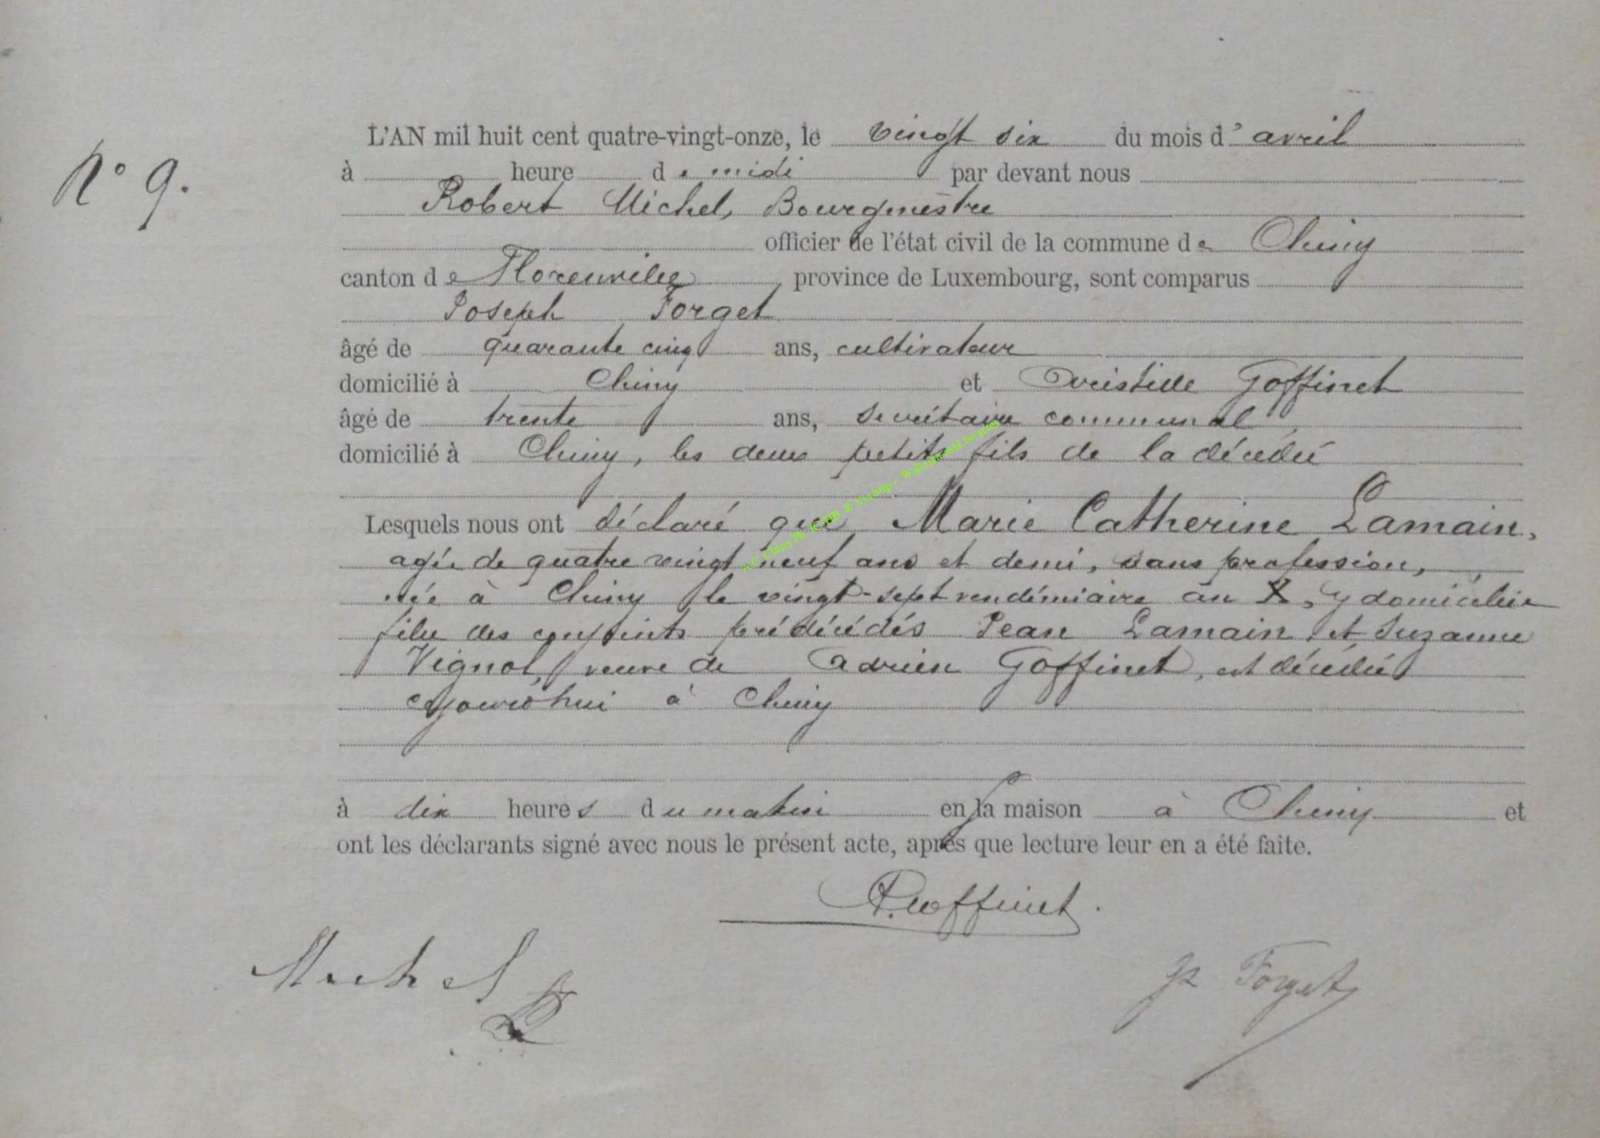 N° 9.
L'AN mil huit cent quatre-vingt-onze, le vingt six du mois d'avril
à heure de midi par devant nous
Robert Michel, Bourgmestre
officier de l'état civil de la commune de Chiny
canton de Florenville, province de Luxembourg, sont comparus
Joseph Forget
âgé de quarante cinq ans, cultivateur
domicilié à Chiny et Aristide Goffinet
âgé de trente ans, secrétaire communal,
domicilié à Chiny, les deux petits fils de la décédée
Lesquels nous ont déclaré que Marie Catherine Lamain,
agée de quatre vingt neuf ans et demi, sans profession,
née à Chiny le vingt-sept vendémiaire an X, y domiciliée
fille des conjoints prédécédés Jean Lamain et Suzanne
Vignol, veuve de Adrien Goffinet, est décédée
aujourd'hui à Chiny
à dix heures du matin en sa maison à Chiny et
ont les déclarants signé avec nous le présent acte, après que lecture leur en a été faite.
A. Goffinet.
Michel R
Js Forget